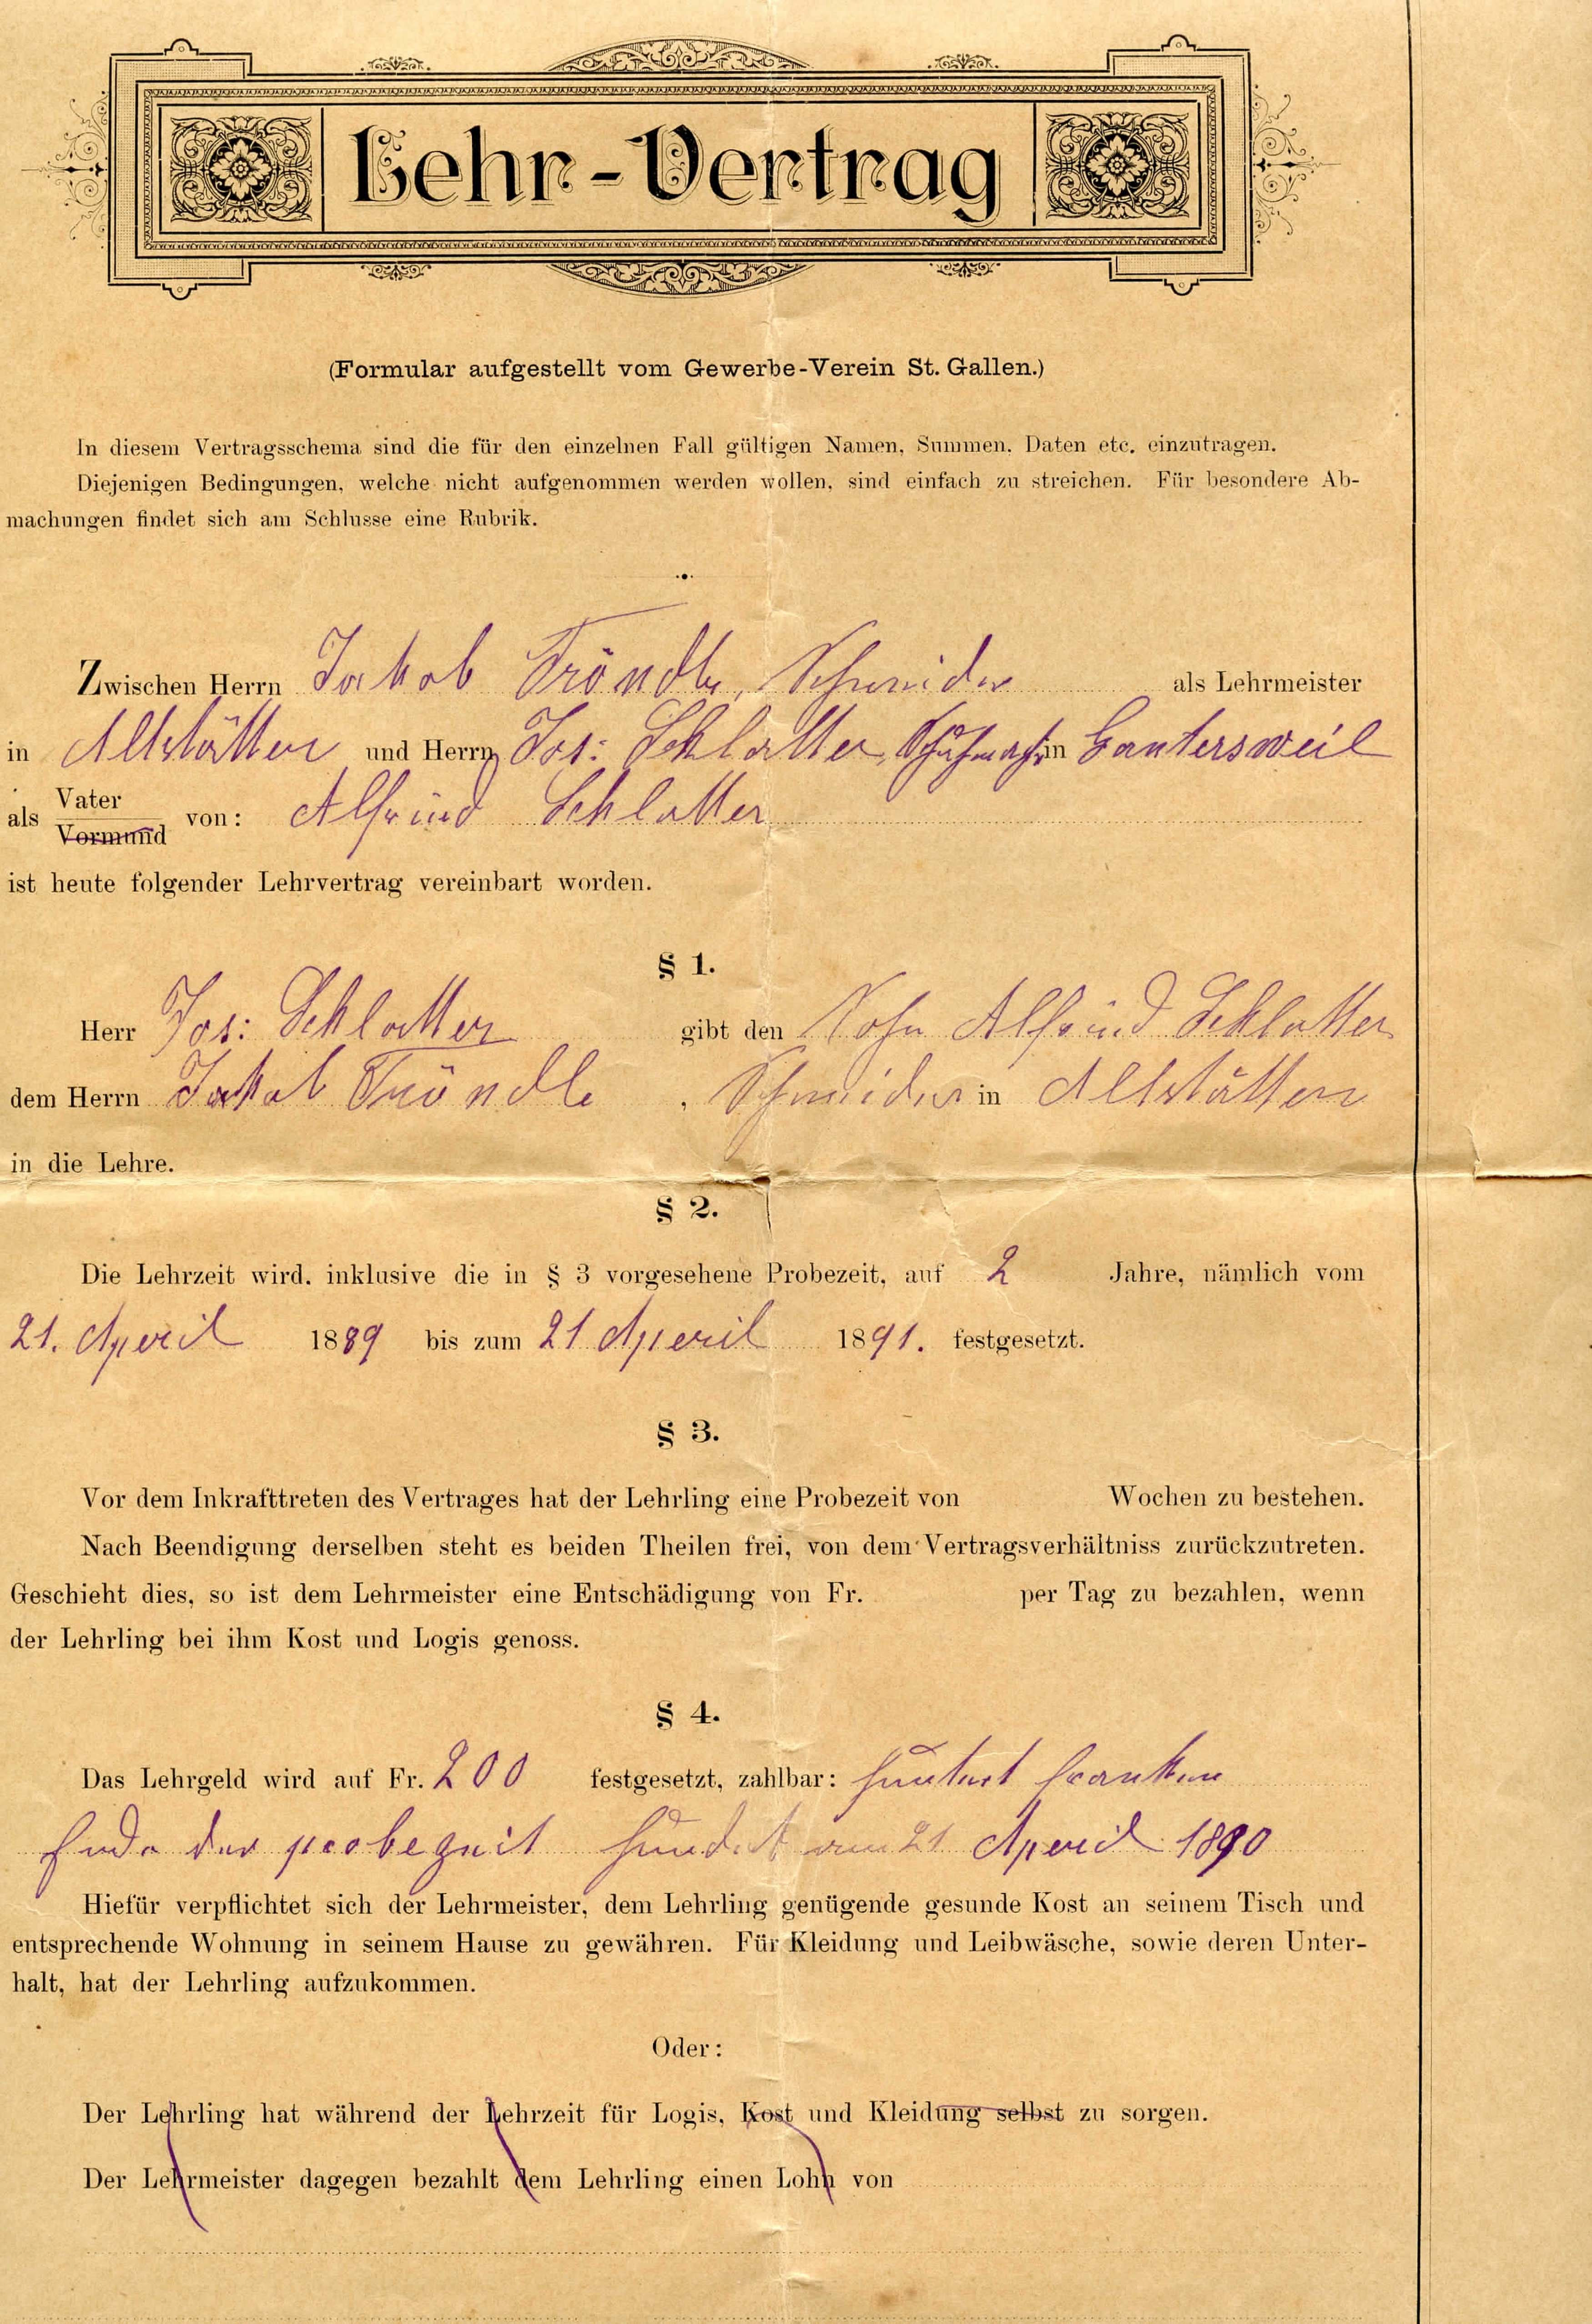 Lehr-Vertrag
(Formular aufgestellt vom Gewerbe-Verein St. Gallen.)
In diesem Vertragsschema sind die für den einzelnen Fall gültigen Namen, Summen, Daten etc. einzutragen.
Diejenigen Bedingungen, welche nicht aufgenommen werden wollen, sind einfach zu streichen. Für besondere Ab-
machungen findet sich am Schlusse eine Rubrik.
Zwischen Herrn Jakob Tröndle, Schneider als Lehrmeister
in Altstätten und Herrn Jos: Schlatter, in Gantersweil
als Vater
Vormund von: Alfred Schlatter
ist heute folgender Lehrvertrag vereinbart worden.
§ 1.
Herr Jos: Schlatter gibt den Sohn Alfred Schlatter
dem Herrn Jakob Tröndle, Schneider in Altstätten
in die Lehre.
§ 2.
Die Lehrzeit wird, inklusive die in § 3 vorgesehene Probezeit, auf 2 Jahre, nämlich vom
21. April 1889 bis zum 21 April 1891. festgesetzt.
§ 3.
Vor dem Inkrafttreten des Vertrages hat der Lehrling eine Probezeit von Wochen zu bestehen.
Nach Beendigung derselben steht es beiden Theilen frei, von dem Vertragsverhältniss zurückzutreten.
Geschieht dies, so ist dem Lehrmeister eine Entschädigung von Fr. per Tag zu bezahlen, wenn
der Lehrling bei ihm Kost und Logis genoss.
§ 4.
Das Lehrgeld wird auf Fr. 200 festgesetzt, zahlbar: franken
Ende der probezeit hundert am 21 April 1890
Hiefür verpflichtet sich der Lehrmeister, dem Lehrling genügende gesunde Kost an seinem Tisch und
entsprechende Wohnung in seinem Hause zu gewähren. Für Kleidung und Leibwäsche, sowie deren Unter-
halt, hat der Lehrling aufzukommen.
Oder:
Der Lehrling hat während der Lehrzeit für Logis, Kost und Kleidung selbst zu sorgen.
Der Lehrmeister dagegen bezahlt dem Lehrling einen Lohn von